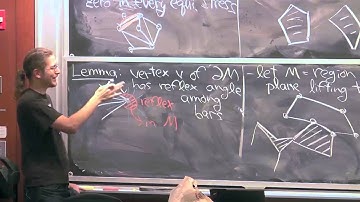 zero in every equi. stress
Lemma: vertex v of ∂M
has reflex angle
among
bars
reflex
in M
- let M = region
plane lifting t